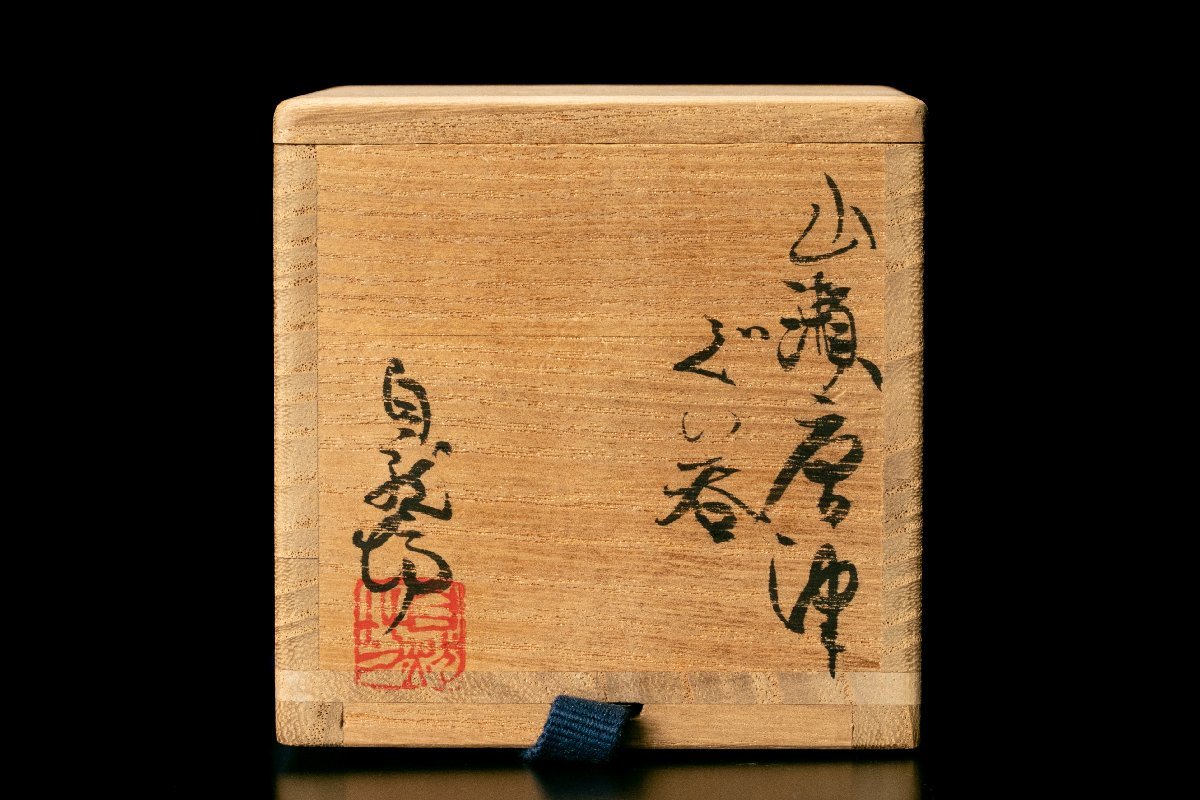 山瀬唐津
ぐい呑
自然坊